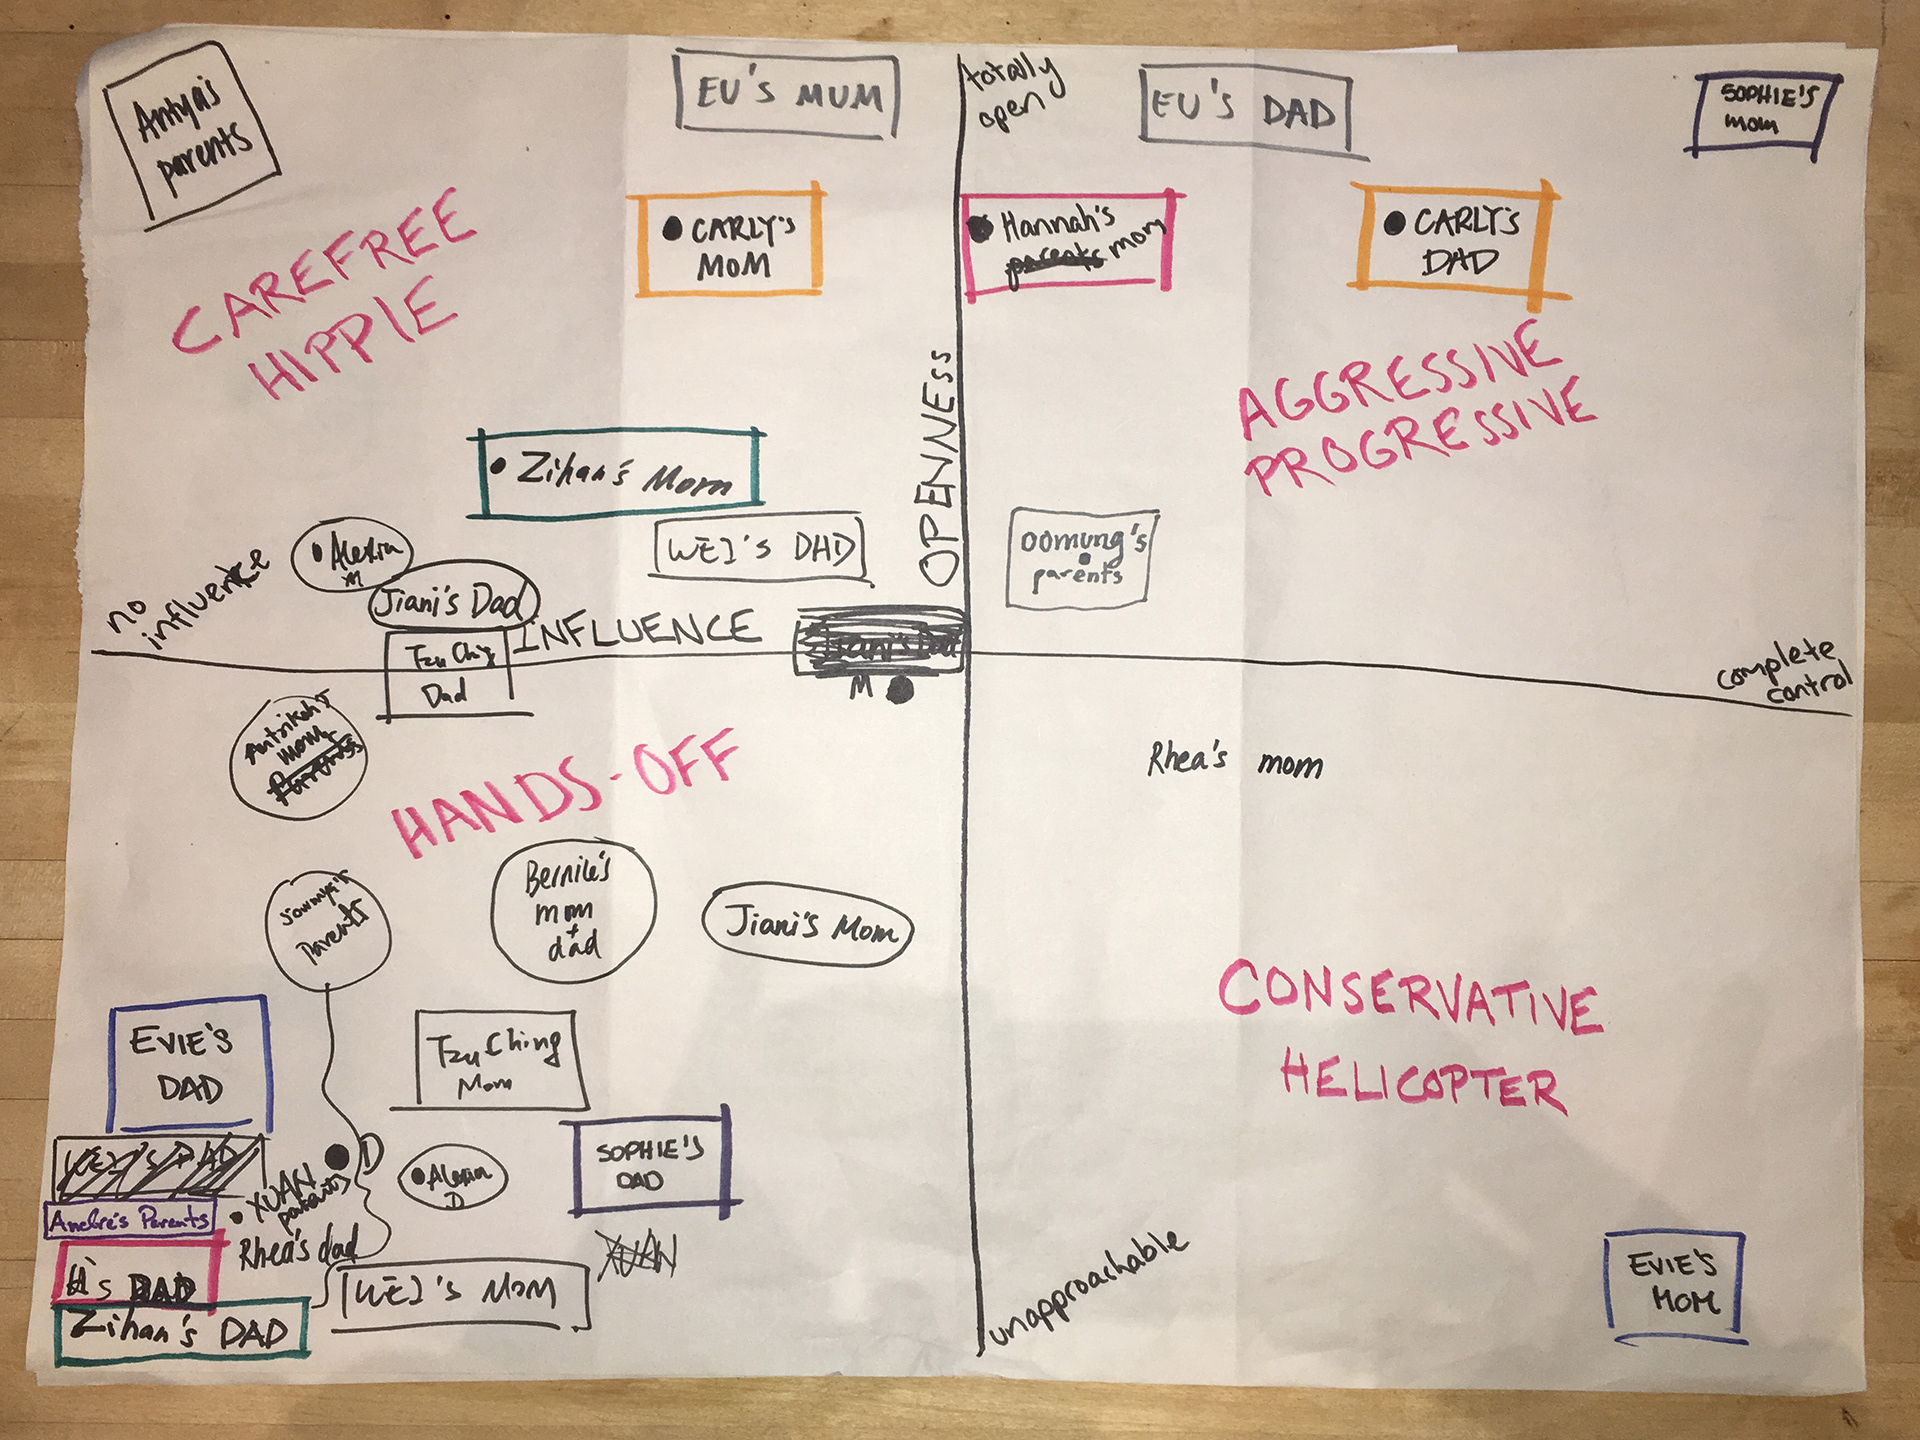 Antya's
parents
EU'S MUM
totally
open
EU'S DAD
SOPHIE'S
mom
CAREFREE
HIPPIE
CARLY'S
MOM
Hannah's
parents mom
CARLY'S
DAD
AGGRESSIVE
PROGRESSIVE
OPENNESS
Zihan's Mom
WEI'S DAD
oomung's
parents
no
influence
Alexia
M
Jiani's Dad
INFLUENCE
Jiani's Dad
Tzu Ching
Dad
M
complete
control
Antriksh's
mom
Rhea's mom
HANDS-OFF
Sowmya's
Parents
Bernile's
mom
+
dad
Jiani's Mom
CONSERVATIVE
HELICOPTER
EVIE'S
DAD
Tzu Ching
Mom
WEI'S DAD
D
XUAN
parents
Alexia
D
SOPHIE'S
DAD
Andre's Parents
Rhea's dad
XUAN
H's DAD
WEI'S MOM
Zihan's DAD
unapproachable
EVIE'S
MOM